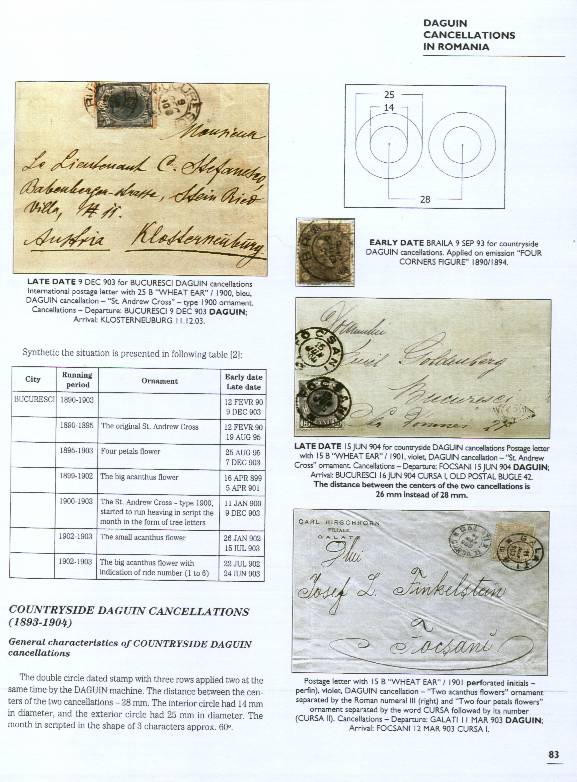 DAGUIN
CANCELLATIONS
IN ROMANIA
Monsieur
Le Lieutenant C. Stefanescu,
Babenberger-strasse, Stein Ried
Villa, # 11.
Austria Klosterneuburg
LATE DATE 9 DEC 903 for BUCURESCI DAGUIN cancellations
International postage letter with 25 B "WHEAT EAR" / 1900, bleu,
DAGUIN cancellation – "St. Andrew Cross" – type 1900 ornament.
Cancellations – Departure: BUCURESCI 9 DEC 903 DAGUIN;
Arrival: KLOSTERNEUBURG 11.12.03.
Synthetic the situation is presented in following table [2]:
City Running period Ornament Early date Late date
BUCURESCI 1890-1903 12 FEVR 90
9 DEC 903
1890-1895 The original St. Andrew Cross 12 FEVR 90
19 AUG 95
1895-1903 Four petals flower 25 AUG 95
7 DEC 903
1899-1902 The big acanthus flower 16 APR 899
5 APR 901
1900-1903 The St. Andrew Cross – type 1900, 11 JAN 900
started to run heaving in script the 9 DEC 903
month in the form of tree letters
1902-1903 The small acanthus flower 26 JAN 902
15 IUL 903
1902-1903 The big acanthus flower with 22 JUL 902
indication of ride number (1 to 6) 24 JUN 903
COUNTRYSIDE DAGUIN CANCELLATIONS
(1893-1904)
General characteristics of COUNTRYSIDE DAGUIN
cancellations
The double circle dated stamp with three rows applied two at the
same time by the DAGUIN machine. The distance between the cen-
ters of the two cancellations – 28 mm. The interior circle had 14 mm
in diameter, and the exterior circle had 25 mm in diameter. The
month in scripted in the shape of 3 characters approx. 60º.
25
14
28
EARLY DATE BRAILA 9 SEP 93 for countryside
DAGUIN cancellations. Applied on emission "FOUR
CORNERS FIGURE" 1890/1894.
FOCSANI
Goldenberg
Bucuresci
FOCSANI
LATE DATE 15 JUN 904 for countryside DAGUIN cancellations Postage letter
with 15 B "WHEAT EAR" / 1901, violet, DAGUIN cancellation – "St. Andrew
Cross" ornament. Cancellations – Departure: FOCSANI 15 JUN 904 DAGUIN;
Arrival: BUCURESCI 16 JUN 904 CURSA I, OLD POSTAL BUGLE 42.
The distance between the centers of the two cancellations is
26 mm instead of 28 mm.
CARL HIRSCHHORN
FILIALE
GALATZ
GALATI
Josef L. Finkelstein
a
Focsani
Postage letter with 15 B "WHEAT EAR" / 1901 perforated initials –
perfin), violet, DAGUIN cancellation – "Two acanthus flowers" ornament
separated by the Roman numeral III (right) and "Two four petals flowers"
ornament separated by the word CURSA followed by its number
(CURSA II). Cancellations – Departure: GALATI 11 MAR 903 DAGUIN;
Arrival: FOCSANI 12 MAR 903 CURSA I.
83